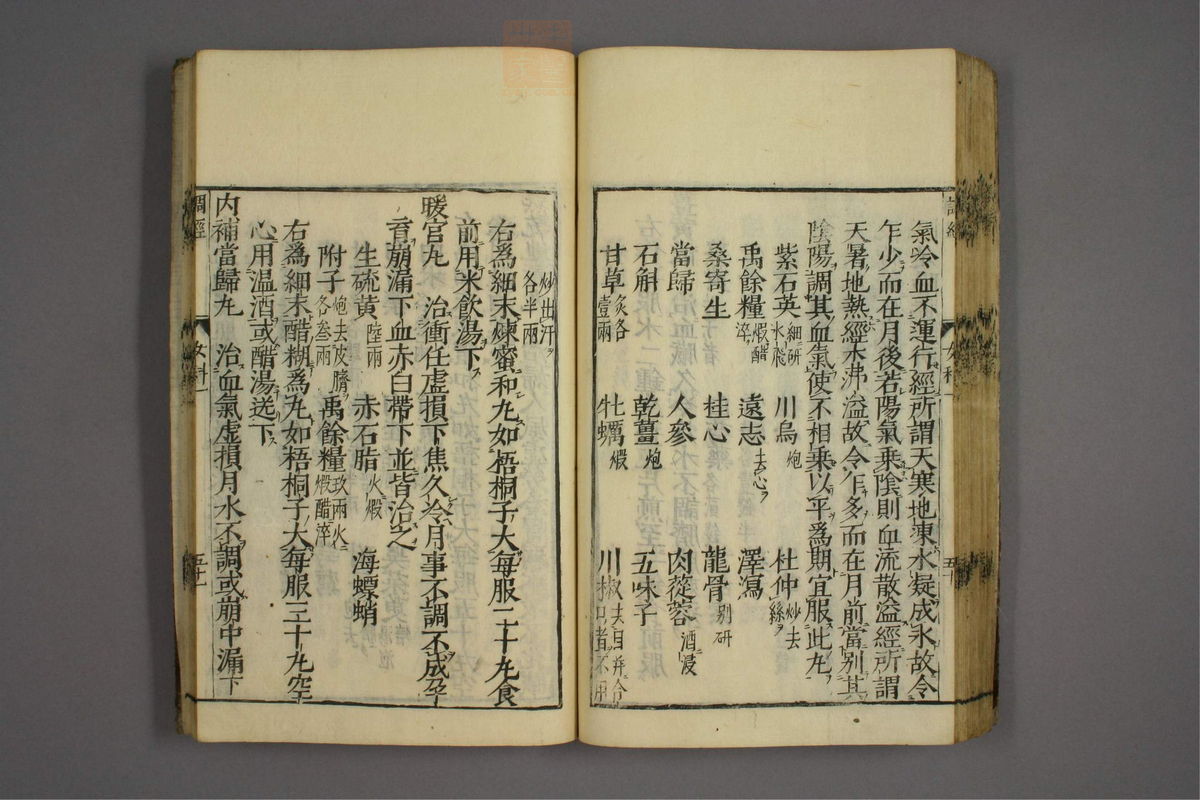 氣冷血不運行經所謂天寒地凍水凝成氷故令
乍少而在月後若陽氣乗陰則血流散溢經所謂
天暑地熱經水沸溢故令乍多而在月前當别其
陰陽調其血氣使不相乗以平爲期宜服此丸
紫石英 細研水飛 川烏 炮 杜仲 炒去絲
禹餘糧 煆醋淬 遠志 去心 澤瀉
桑寄生 桂心 龍骨 别研
當歸 人參 肉蓯蓉 酒浸
石斛 乾薑 炮 五味子
甘草 炙各壹兩 牡蠣 煆 川椒 去目并合口者不用
炒出汗各半兩
右爲細末煉蜜和丸如梧桐子大每服二十丸食
前用米飲湯下
暖宫丸 治衝任虚損下焦久冷月事不調不成孕
育崩漏下血赤白帶下並皆治之
生硫黄 陸兩 赤石脂 火煆 海螵蛸
附子 炮去皮臍各叁兩 禹餘糧 玖兩火煆醋淬
右爲細末醋糊爲丸如梧桐子大每服三十丸空
心用温酒或醋湯送下
内補當歸丸 治血氣虚損月水不調或崩中漏下
調經 女科一 五十一